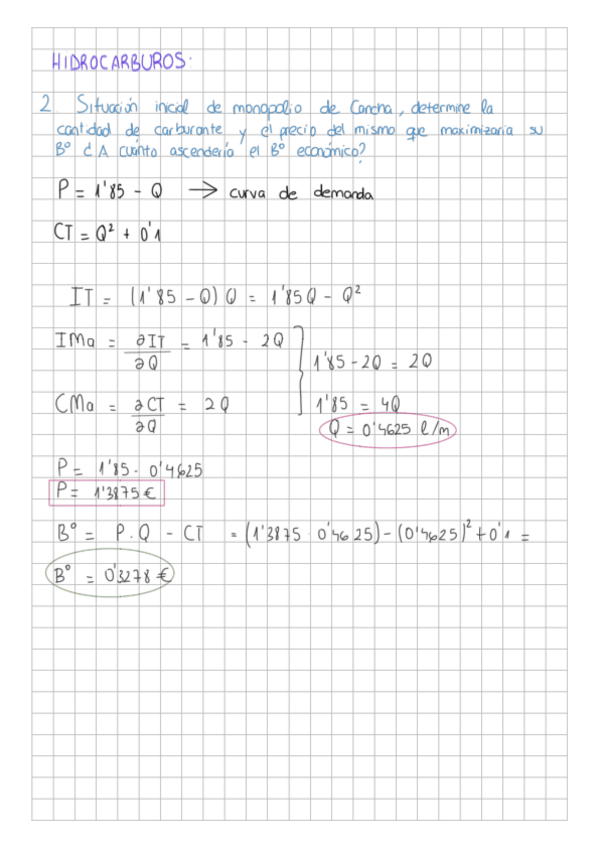 HIDROCARBUROS:
2. Situación inicial de monopolio de Concha, determine la
cantidad de carburante y el precio del mismo que maximizaria su
Bº ¿A cuánto ascendería el Bº económico?
P = 1'85 - Q → curva de demanda
CT = Q² + 0'1
IT = (1'85 - Q) Q = 1'85Q - Q²
IMa = ∂IT/∂Q = 1'85 - 2Q
1'85 - 2Q = 2Q
CMa = ∂CT/∂Q = 2Q
1'85 = 4Q
Q = 0'4625 l/m
P = 1'85 - 0'4625
P = 1'3875 €
Bº = P.Q - CT = (1'3875 · 0'4625) - (0'4625)² + 0'1 =
Bº = 0'3278 €